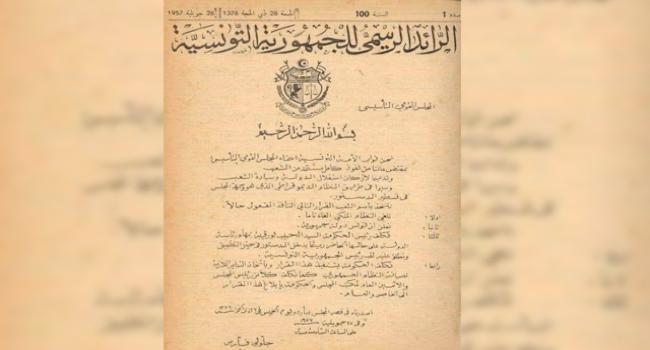 عدد 1 السنة 100 الجمعة 28 ذي الحجة 1376 26 جويلية 1957
الرائد الرسمي للجمهورية التونسية
المجلس القومي التأسيسي
بسم الله الرحمن الرحيم
نحن نواب الأمة التونسية أعضاء المجلس القومي التأسيسي
بمقتضى مالنا من نفوذ كامل مستمد من الشعب
وتدعيما لأركان استقلال الدولة وسيادة الشعب
وسيرا في طريق النظام الديموقراطي الذي هو وجهة المجلس
في تسطير الدستور
نتخذ باسم الشعب القرار التالي النافذ المفعول حالا
أولا : نلغي النظام الملكي إلغاء تاما
ثانيا : نعلن أن تونس دولة جمهورية
ثالثا : نكلف رئيس الحكومة السيد الحبيب بورقيبة بمهام رئاسة
الدولة على حالها الحاضر ريثما يدخل الدستور في حيز التطبيق
ونطلق عليه لقب رئيس الجمهورية التونسية
رابعا : نكلف الحكومة بتنفيذ هذا القرار وباتخاذ التدابير اللازمة
لصيانة النظام الجمهوري كما نكلف كلا من رئيس المجلس
والأمين العام لمكتب المجلس والحكومة بإبلاغ هذا القرار
إلى الخاص والعام
أصدرناه في قصر المجلس بباردو يوم الخميس
وفي 25 جويلية 1957
على الساعة السادسة مساء
جلولي فارس